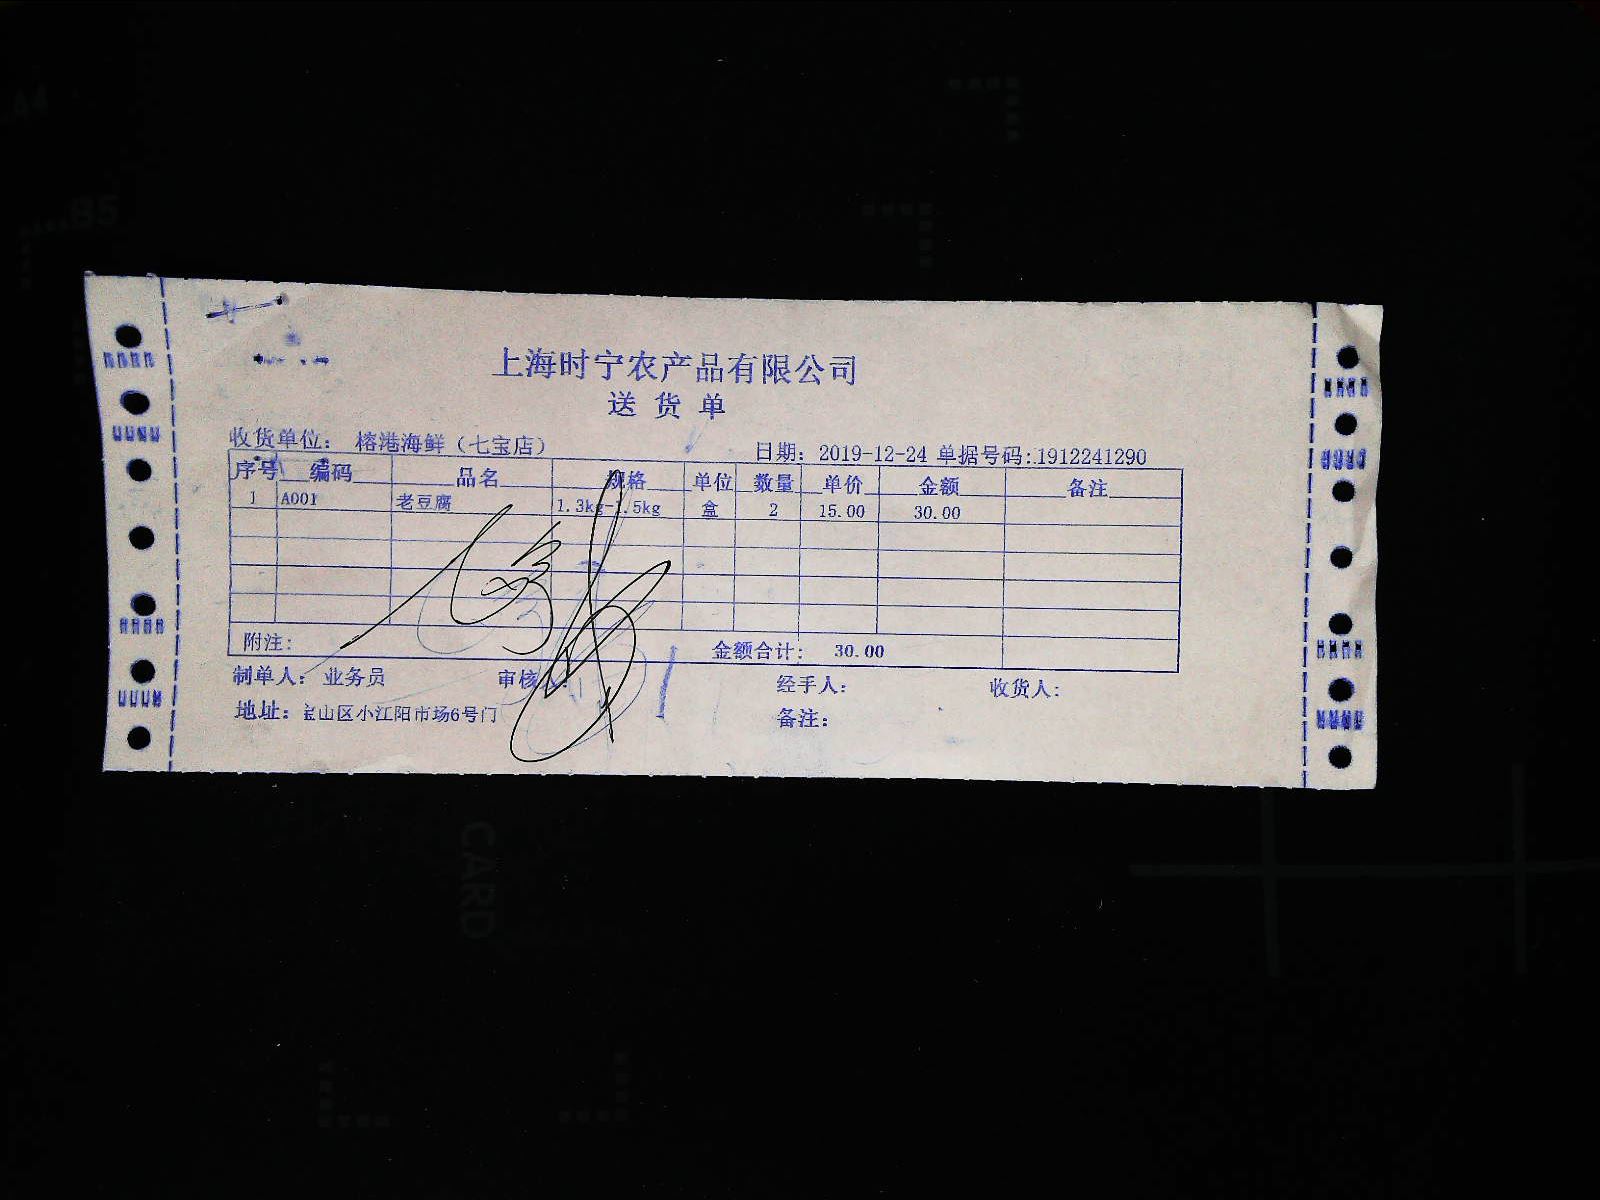 上海时宁农产品有限公司
送货单
收货单位: 榕港海鲜(七宝店) 日期: 2019-12-24 单据号码:1912241290
序号 编码 品名 规格 单位 数量 单价 金额 备注
1 A001 老豆腐 1.3kg-1.5kg 盒 2 15.00 30.00
附注: 金额合计: 30.00
制单人: 业务员 审核人: 经手人: 收货人:
地址: 宝山区小江阳市场6号门 备注:
A4
B5
CARD